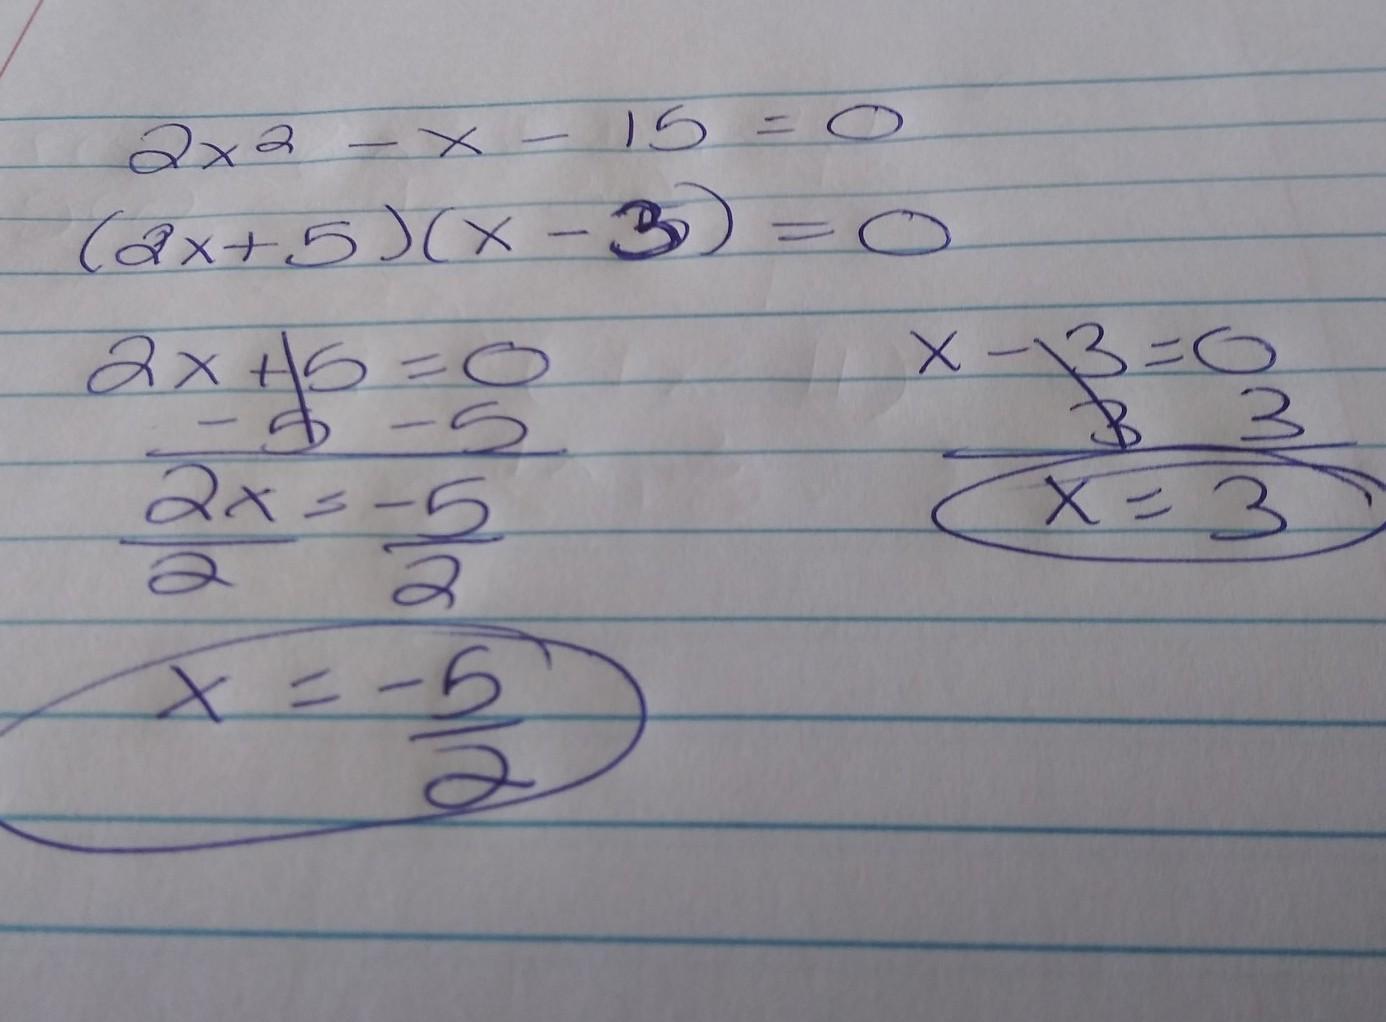 2x² - x - 15 = 0
(2x+5)(x - 3) = 0
2x+5=0
-5 -5
2x = -5
2 2
x = -5
2
x - 3=0
3 3
x = 3